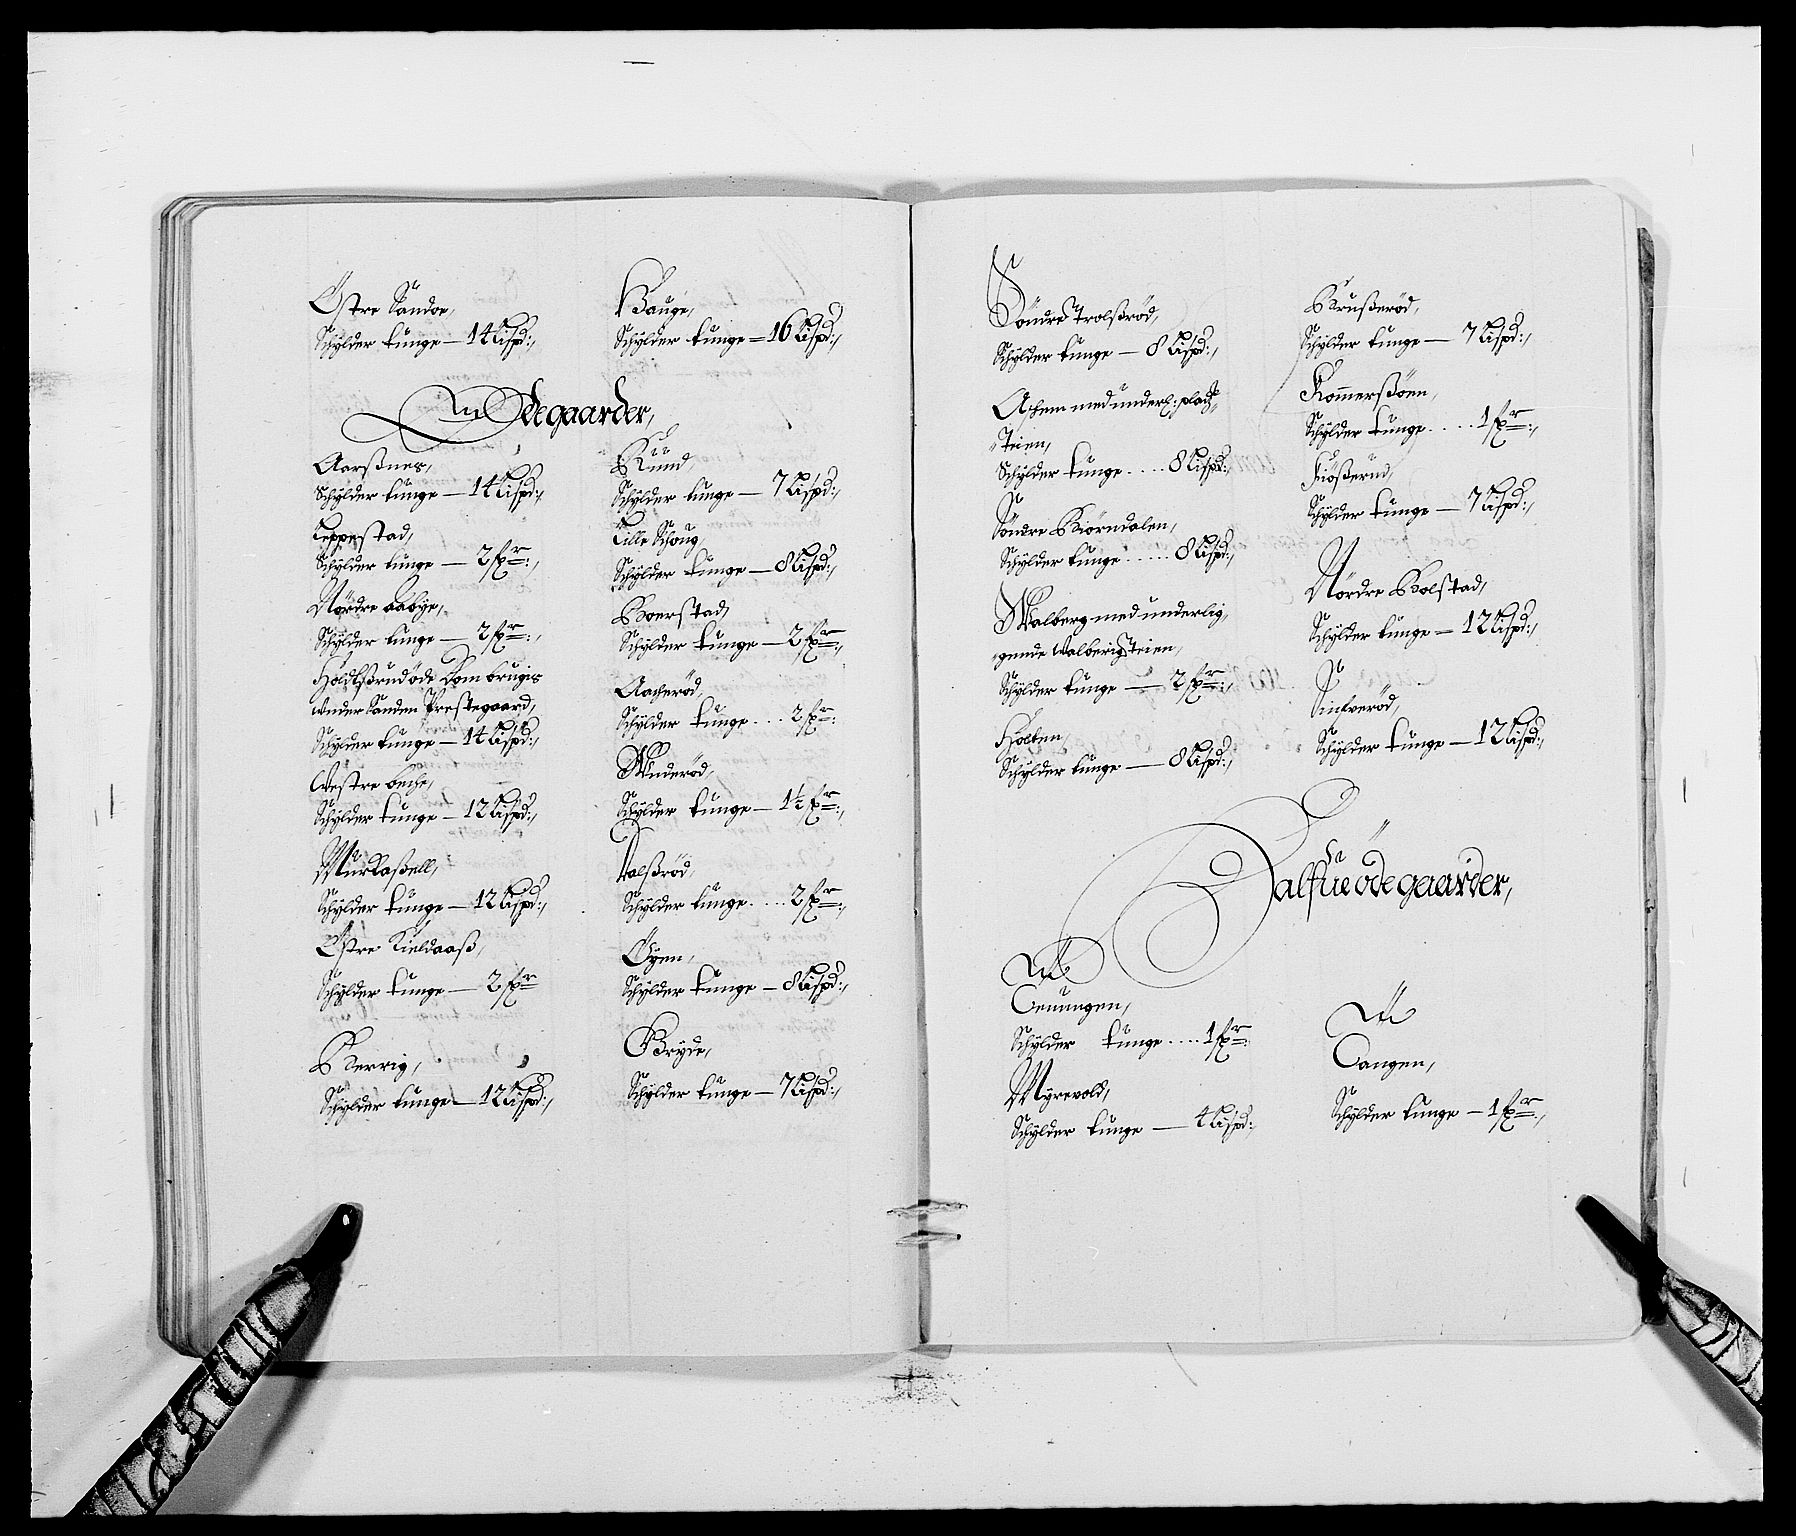 Östre Sandoe,
Schylder tunge — 14 Lispd:,
Ødegaarder,
Aarßnes,
Schylder tunge — 14 Lispd:,
Teppestad,
Schylder tunge — 2 fr:,
Nordre Aabye,
Schylder tunge — 2 fr:,
Holdtßrud öde Som brugis
under Sanden Prestegaard,
Schylder tunge — 14 Lispd:,
Westre beche,
Schylder tunge — 12 Lispd:,
Schylder tunge — 12 Lispd:,
Östre Kieldaaß,
Schylder tunge — 2 fr
Berrig,
Schylder tunge — 12 Lispd:,
Hauge,
Schylder tunge = 16 Lispd:,
Rund,
Schylder tunge — 7 Lispd:,
Lille Schoug,
Schylder tunge — 8 Lispd:,
Boerstad,
Schylder tunge — 2 fr:,
Aacherød,
Schylder tunge .... 2 fr:
Winderød,
Schylder tunge — 1½ fr:,
Schylder tunge .... 2 fr:,
Öyen,
Schylder tunge — 8 Lispd:,
Bryde,
Schylder tunge — 7 Lispd:,
Söndre Trolßröd,
Schylder tunge — 8 Lispd:,
med underl: plads,
Teien,
Schylder tunge .... 8 Lispd:,
Söndre Biörndalen,
Schylder tunge ..... 8 Lispd:,
Walberg med underlig,
gende Walberg Teien,
Schylder tunge — 2 fr:,
Holten,
Schylder tunge — 8 Lispd:,
Brußerød,
Schylder tunge — 7 Lispd:,
Rommerßöen,
Schylder tunge ..... 1 fr:,
Schylder tunge — 7 Lispd:,
Nordre Bolstad,
Schylder tunge — 12 Lispd:,
Schylder tunge — 12 Lispd:,
Halfue ödegaarder,
Schylder tunge .... 1 fr:
Myrevold,
Schylder tunge — 4 Lispd:,
Tangen,
Schylder tunge — 1 fr:,